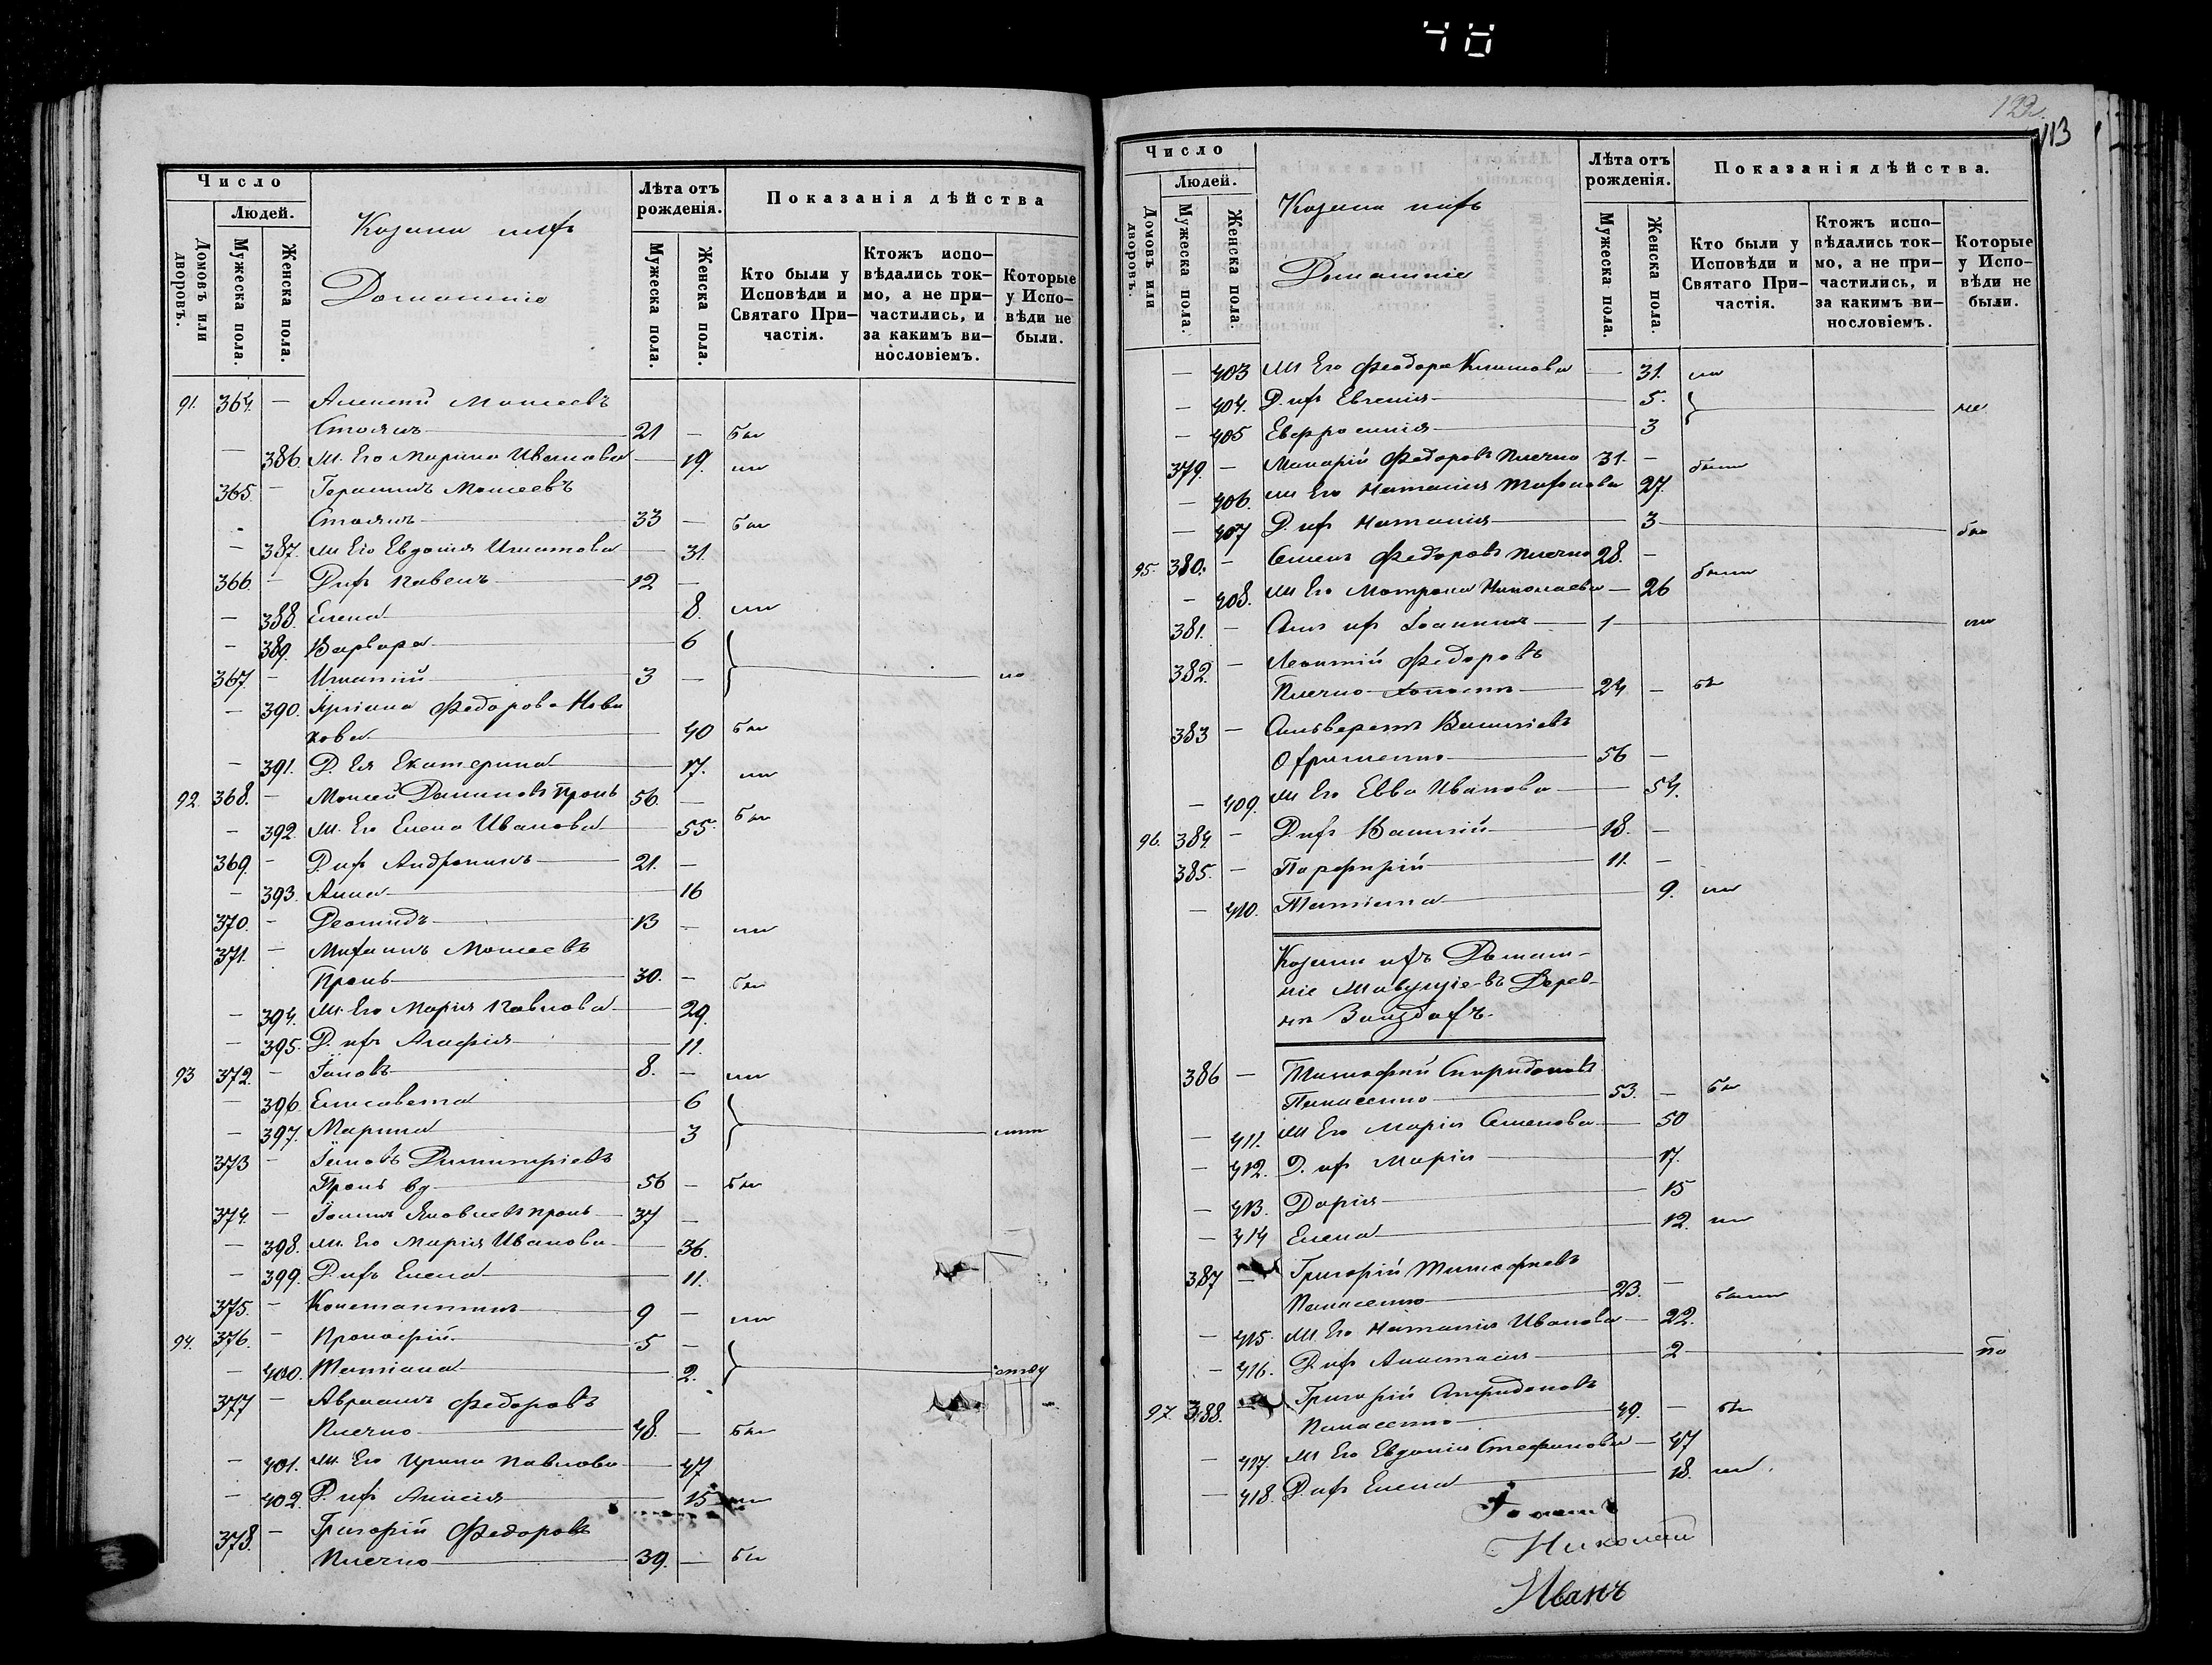 40
Число
Людей.
Домовъ или дворовъ.
Мужеска пола.
Женска пола.
Козаки ихъ
Домашнiе
Лѣта отъ рожденія.
Мужеска пола.
Женска пола.
Показанія дѣйства
Кто были у Исповѣди и Святаго Причастія.
Ктожъ исповѣдались токмо, а не причастились, и за какимъ винословіемъ.
Которые у Исповѣди не были.
91. 364. — Алексій Моисеевъ
Стоянъ 21 —
— 386. Ж. Его Марина Иванова — 19.
365 — Герасимъ Моисеевъ
Стоянъ 33 —
— 387. Ж Его Евдокія Игнатова — 31.
366. — Д. ихъ Павелъ 12 —
— 388. Елена 8.
— 389. Варвара 6
367. — Игнатій 3 —
— 390. Федорова Нова
кова 40
— 391. Д. Ея Екатерина 17.
92. 368. — Моисей Даниловъ Пронь 56. —
— 392. Ж. Его Елена Иванова 55.
369. — Д. ихъ Андроникъ 21. —
— 393. Анна 16
370. — Леонидъ 13 —
371. — Михаилъ Моисеевъ
Пронь 30. —
— 394. Ж. Его Марія Павлова 29.
— 395. Д. ихъ Агафія 11.
93 372. — Іаковъ 8. —
— 396. Елисавета 6
— 397. Марина 3
373 — Іаковъ Димитріевъ
Пронь вд 56 —
374. — Іоаннъ Яковлевъ Пронь 37 —
— 398. Ж. Его Марія Иванова 36.
— 399. Д. ихъ Елена 11.
375. — Константинъ 9 —
94. 376. — Прокофій 5 —
— 400. Татіана 2.
377 — Авраамъ Федоровъ
48. —
— 401. Ж. Его Ирина Павлова 47
— 402. Д. ихъ Анисія 15
378. — Григорій Федоровъ
39. —
113
Число
Людей.
Домовъ или дворовъ.
Мужеска пола.
Женска пола.
Козаки ихъ
Домашніе
Лѣта отъ рожденія.
Мужеска пола.
Женска пола.
Показанія дѣйства.
Кто были у Исповѣди и Святаго Причастія.
Ктожъ исповѣдались токмо, а не причастились, и за какимъ винословіемъ.
Которые у Исповѣди не были.
— 403 Ж Его Феодора Климова — 31.
— 404. Д. ихъ Евгенія 5.
— 405 Евфросинія 3
379. — Макарій Федоровъ 31. — были
— 406. Ж Его Наталія 27.
— 407 Д. ихъ Наталія 3
95. 380. — Семенъ Федоровъ 28. — были
— 408. Ж Его Матрона Николаева — 26
381. — Сынъ ихъ Іоаннъ 1
382. — Леонтій Федоровъ
холостъ 24 —
383 — Сильвестръ Василіевъ
56 —
— 409. Ж Его Евва Иванова — 54.
96. 384 — Д. ихъ Василій 18. —
385. — Порфирій 11. —
— 410. Татіана 9.
Козаки ихъ Домаш-
ніе Живущіе въ Дерев-
386 — Тимофей Спиридоновъ
Панасенко 53. —
— 411. Ж Его Марія Семенова 50
— 412. Д. ихъ Марія 17.
— 413. Дарія 15
— 414 Елена 12.
387 — Григорій Тимофеевъ
Панасенко 23. — были
— 415. Ж. Его Наталія Иванова — 22.
— 416. Д. ихъ Анастасія 2
97. 388. Григорій Спиридоновъ
Панасенко 49. —
— 417. Ж Его Евдокія Стефанова — 47
— 418. Д. ихъ Елена 18.
Николай
Иванъ